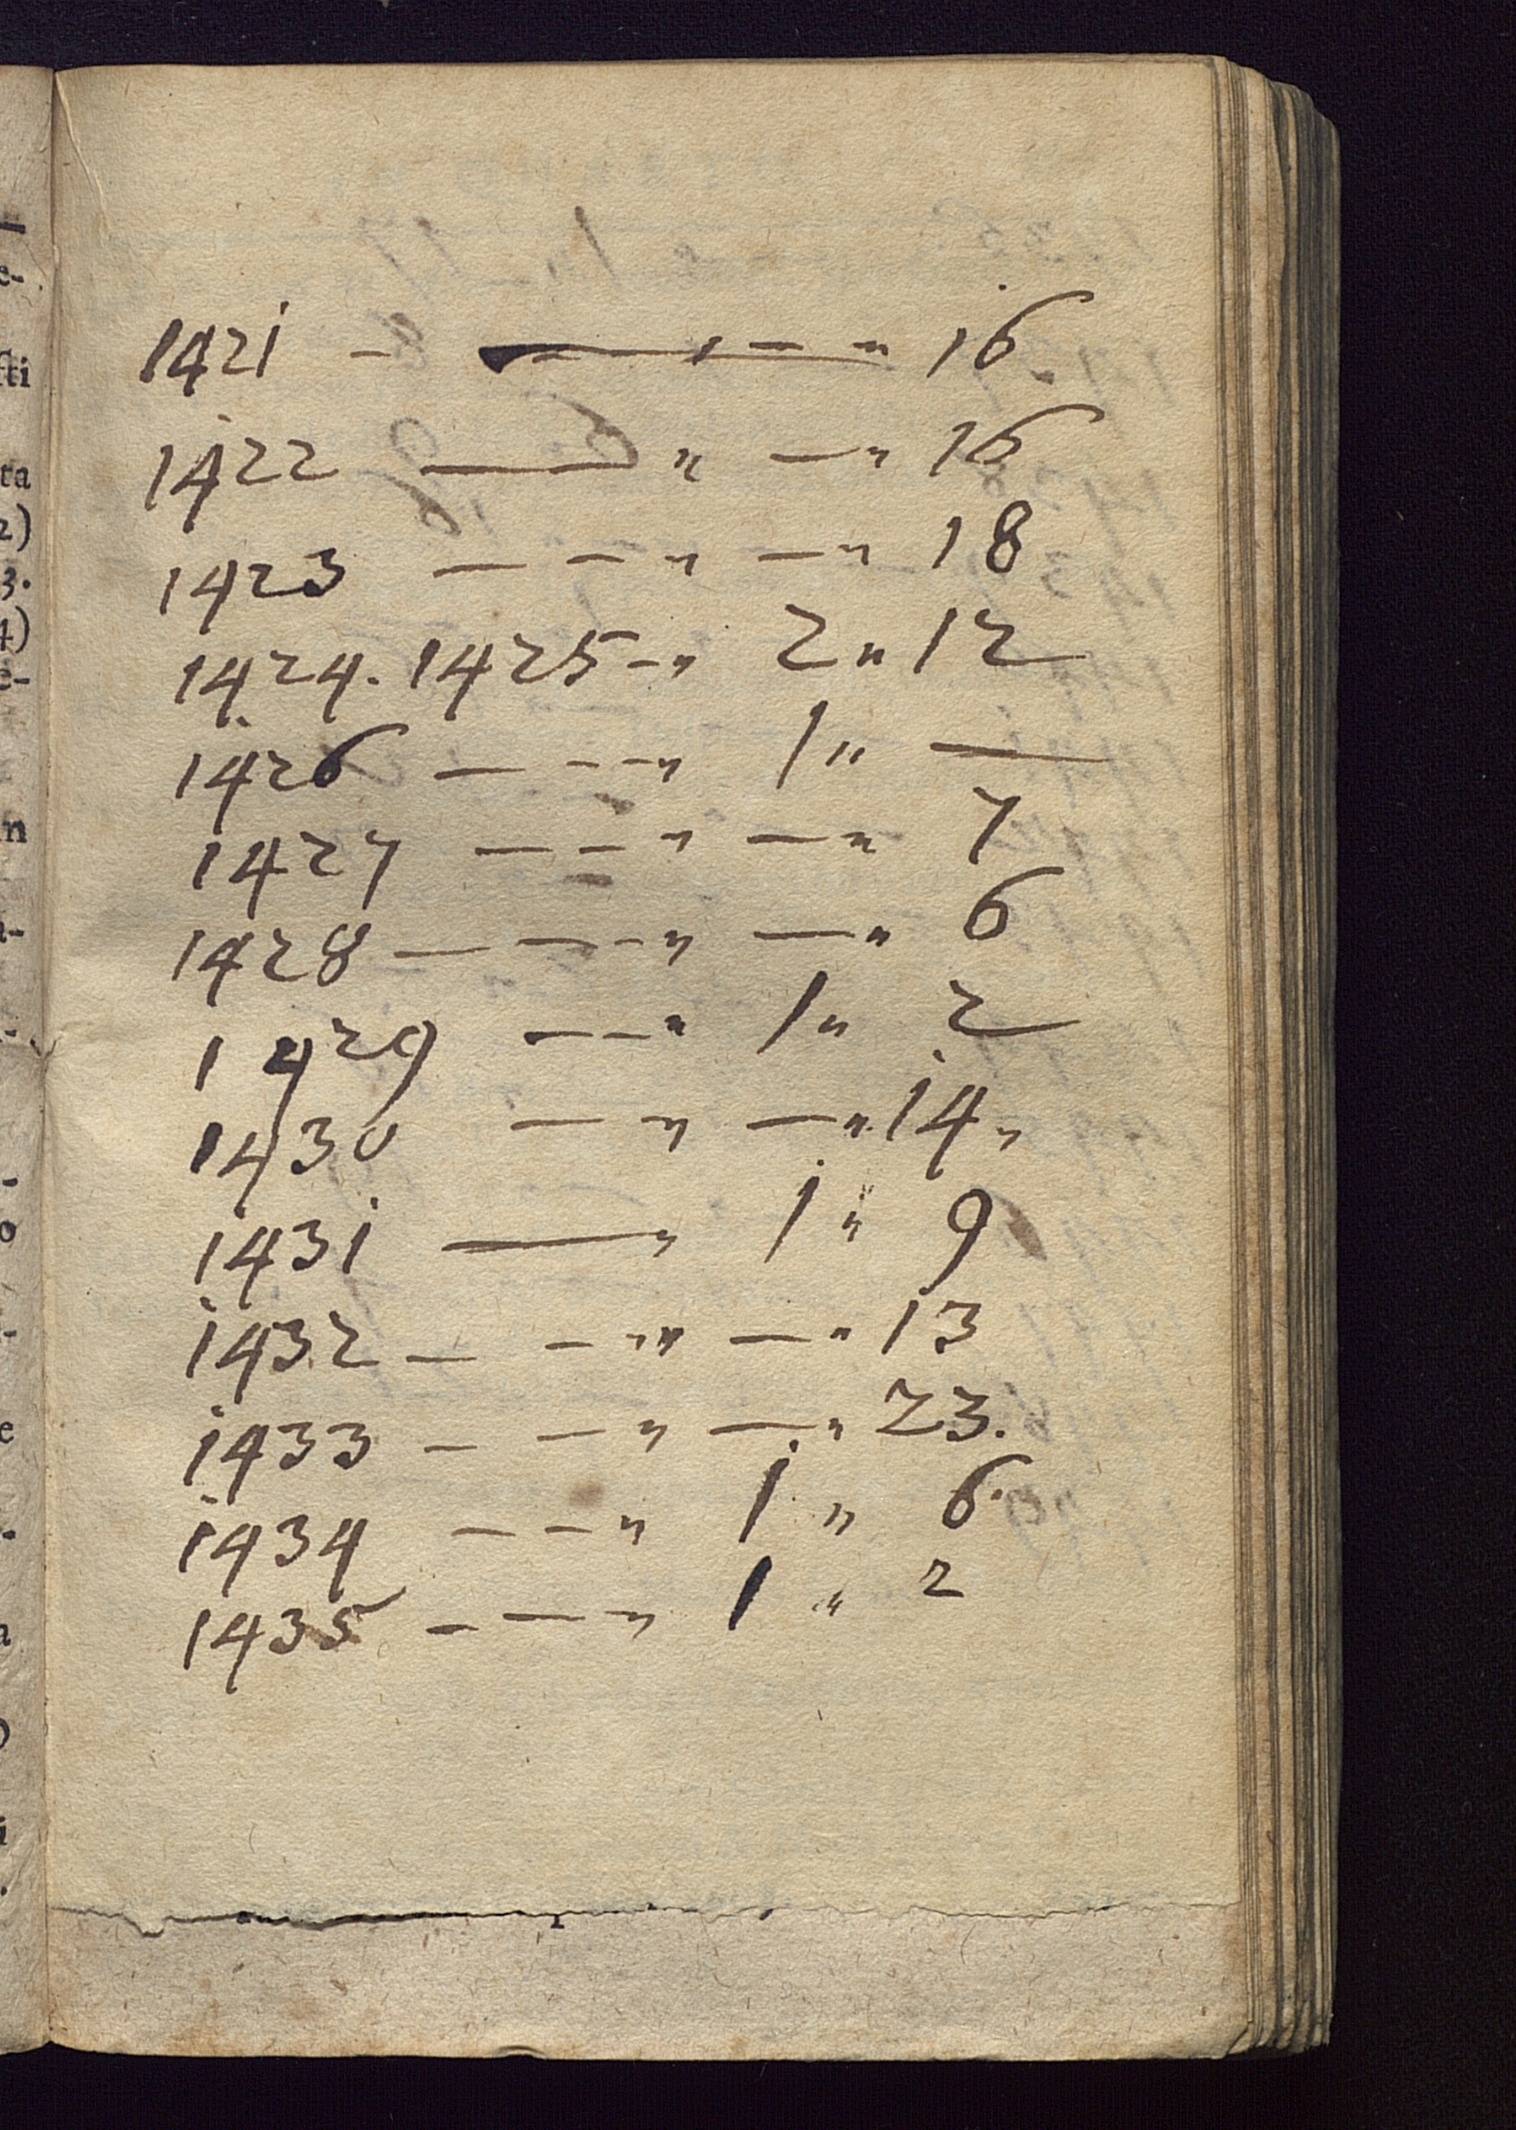 1421 - — - - " 16
1422 — " — " 16
1423 — - " — " 18
1424. 1425 - " 2 " 12
1426 — - - " 1 " —
1427 — - " — " 7
1428 — — - " — " 6
1429 — - " 1 " 2
1430 — - " — " 14 "
1431 — " 1 " 9
1432 — - - " — " 13
1433 - — " — " 23.
1434 — - " 1 " 6.
1435 - — - " 1 " 2